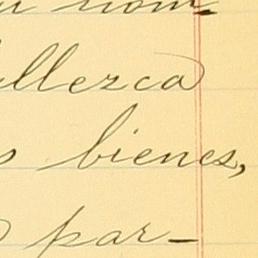 nom-
llezca
s bienes,
par-